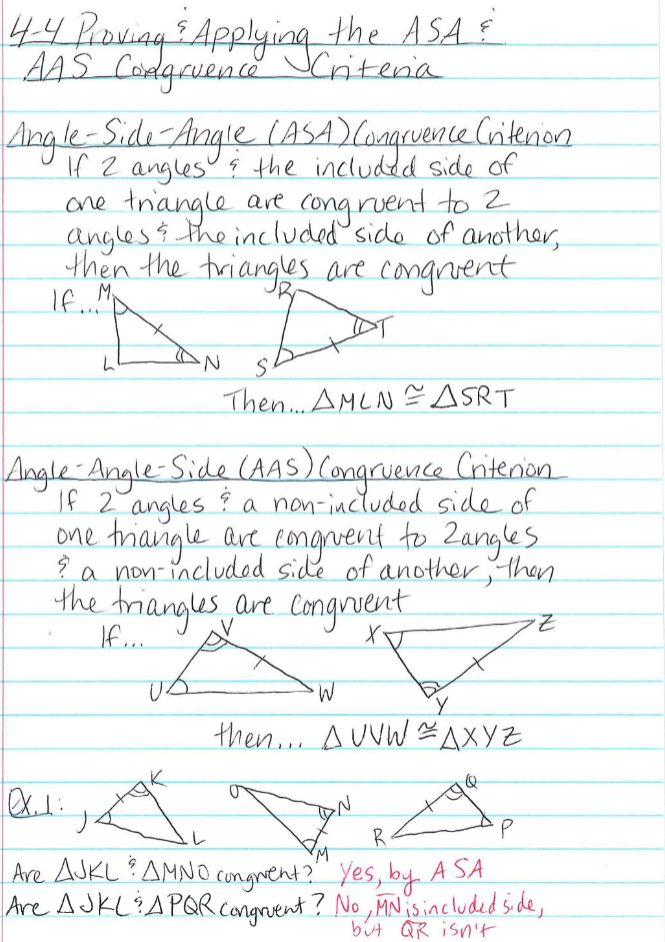 4-4 Proving & Applying the ASA &
AAS Congruence Criteria
Angle-Side-Angle (ASA) Congruence Criterion
If 2 angles & the included side of
one triangle are congruent to 2
angles & the included side of another,
then the triangles are congruent
If... M R
T
L N S
Then... △MLN ≅ △SRT
Angle-Angle-Side (AAS) Congruence Criterion
If 2 angles & a non-included side of
one triangle are congruent to 2 angles
& a non-included side of another, then
the triangles are congruent
If... V X Z
U W Y
then... △UVW ≅ △XYZ
Ex.1: J K L O N M Q R P
Are △JKL & △MNO congruent? Yes, by ASA
Are △JKL & △PQR congruent? No, MN is included side,
but QR isn't